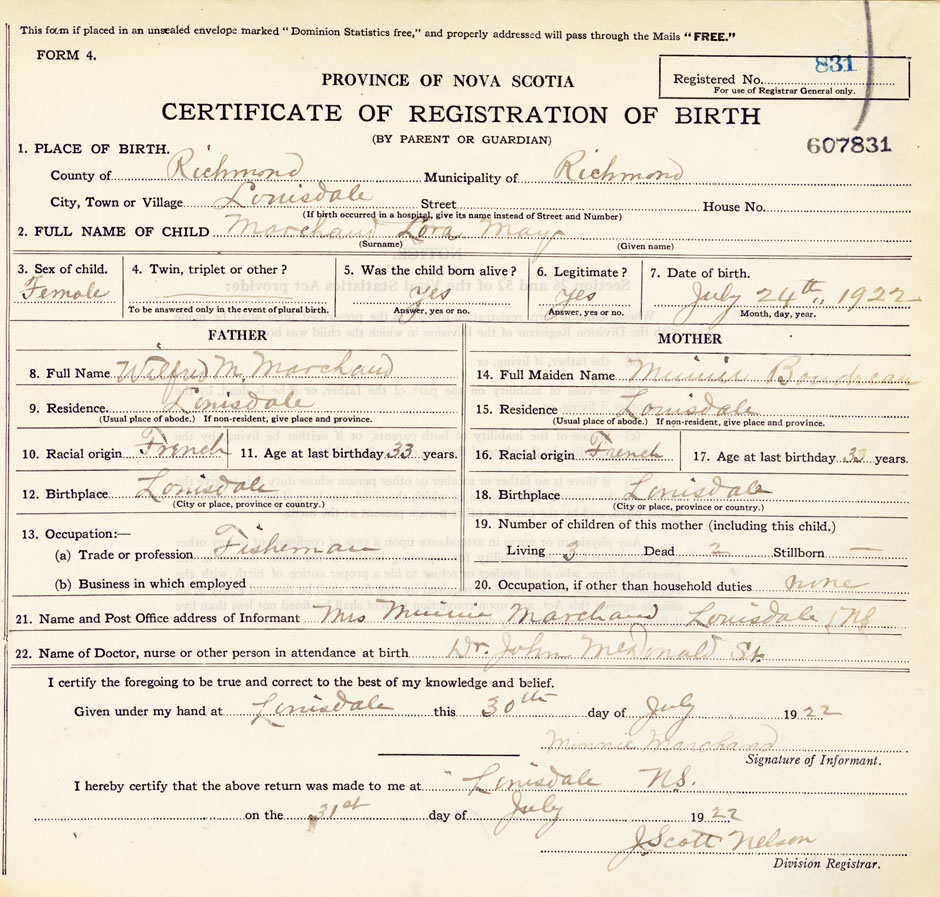 This form if placed in an unsealed envelope marked "Dominion Statistics free," and properly addressed will pass through the Mails "FREE."
FORM 4.
831
Registered No.
For use of Registrar General only.
PROVINCE OF NOVA SCOTIA
CERTIFICATE OF REGISTRATION OF BIRTH
(BY PARENT OR GUARDIAN)
607831
1. PLACE OF BIRTH.
County of Richmond Municipality of Richmond
City, Town or Village Louisdale Street House No.
(If birth occurred in a hospital, give its name instead of Street and Number)
2. FULL NAME OF CHILD Marchand Lora May
(Surname) (Given name)
3. Sex of child. 4. Twin, triplet or other? 5. Was the child born alive? 6. Legitimate? 7. Date of birth.
Female yes yes July 24th, 1922
To be answered only in the event of plural birth. Answer, yes or no. Answer, yes or no. Month, day, year.
FATHER MOTHER
8. Full Name Wilfred M. Marchand 14. Full Maiden Name Minnie Boudreau
9. Residence. Louisdale 15. Residence Louisdale
(Usual place of abode.) If non-resident, give place and province. (Usual place of abode.) If non-resident, give place and province.
10. Racial origin French 11. Age at last birthday 33 years. 16. Racial origin French 17. Age at last birthday 33 years.
12. Birthplace Louisdale 18. Birthplace Louisdale
(City or place, province or country.) (City or place, province or country.)
13. Occupation:— 19. Number of children of this mother (including this child.)
(a) Trade or profession Fisherman Living 3 Dead 2 Stillborn —
(b) Business in which employed 20. Occupation, if other than household duties none
21. Name and Post Office address of Informant Mrs Minnie Marchand Louisdale NS
22. Name of Doctor, nurse or other person in attendance at birth Dr. John McDonald St.
I certify the foregoing to be true and correct to the best of my knowledge and belief.
Given under my hand at Louisdale this 30th day of July 1922
Minnie Marchand
Signature of Informant.
I hereby certify that the above return was made to me at Louisdale NS.
on the 31st day of July 1922
J. Scott Nelson
Division Registrar.